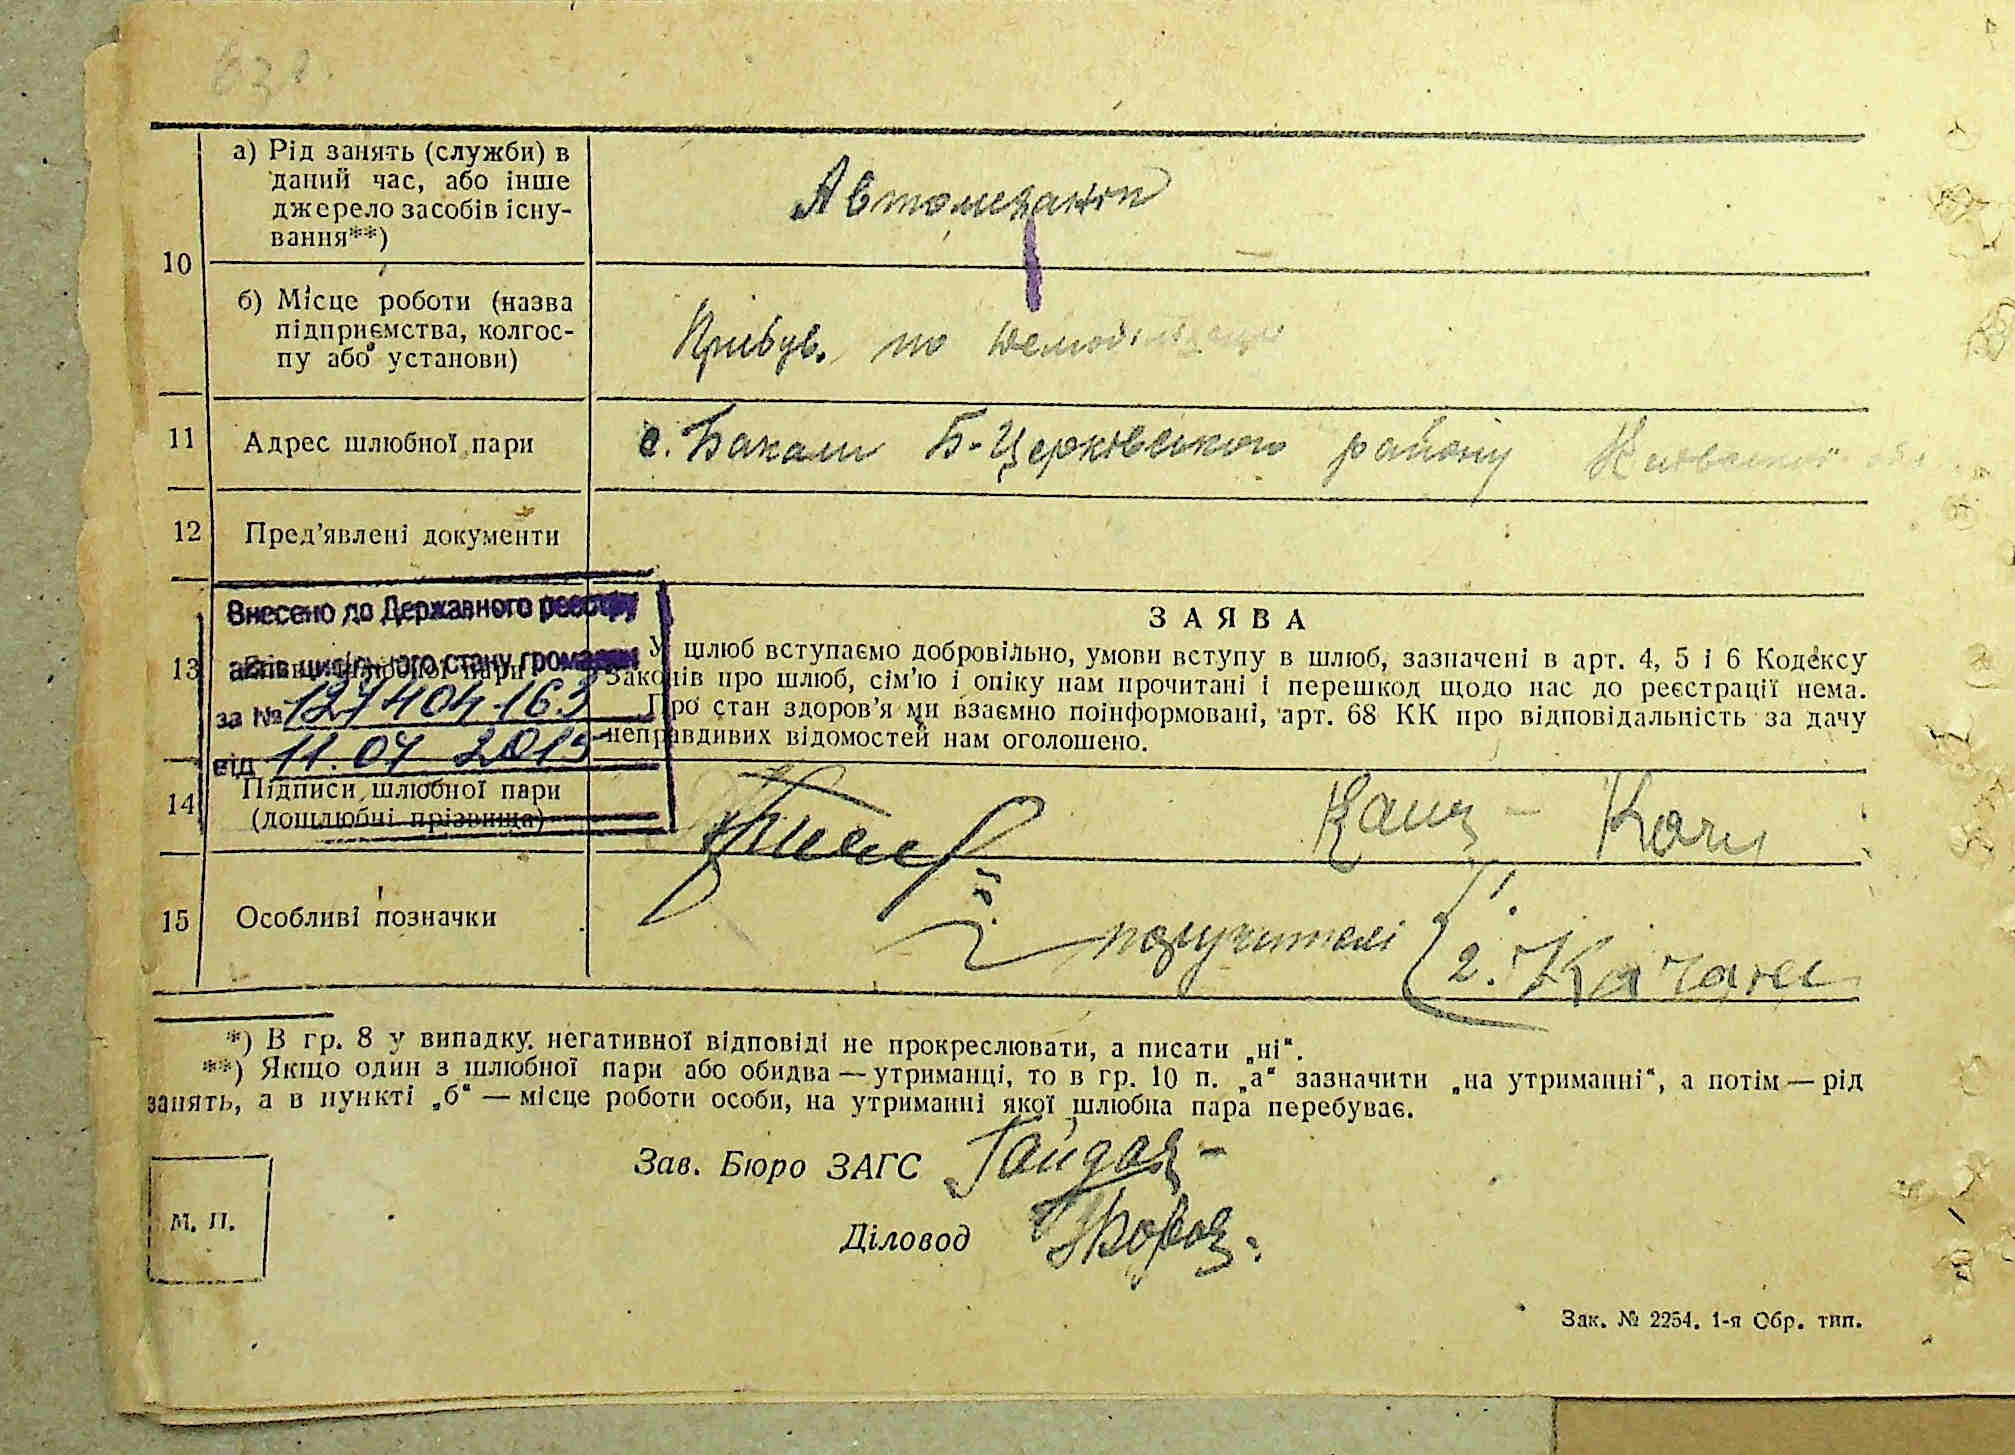 10
а) Рід занять (служби) в
даний час, або інше
джерело засобів існу-
вання**)
Автомеханік
б) Місце роботи (назва
підприємства, колгос-
пу або установи)
Прибув. по
11
Адрес шлюбної пари
с. Бакали Б-Церківського району
12
Пред’явлені документи
13
Внесено до Державного реєстру
актів цивільного стану громадян
за № 127404163
від 11.07 2015
ЗАЯВА
У шлюб вступаємо добровільно, умови вступу в шлюб, зазначені в арт. 4, 5 і 6 Кодексу
Законів про шлюб, сім’ю і опіку нам прочитані і перешкод щодо нас до реєстрації нема.
Про стан здоров’я ми взаємно поінформовані, арт. 68 КК про відповідальність за дачу
неправдивих відомостей нам оголошено.
14
Підписи шлюбної пари
(дошлюбні прізвища)
15
Особливі позначки
поручителі
1.
2.
*) В гр. 8 у випадку негативної відповіді не прокреслювати, а писати „ні“.
**) Якщо один з шлюбної пари або обидва — утриманці, то в гр. 10 п. „а“ зазначити „на утриманні“, а потім — рід
занять, а в пункті „б“ — місце роботи особи, на утриманні якої шлюбна пара перебуває.
Зав. Бюро ЗАГС
Діловод
М. П.
Зак. № 2254. 1-я Обр. тип.